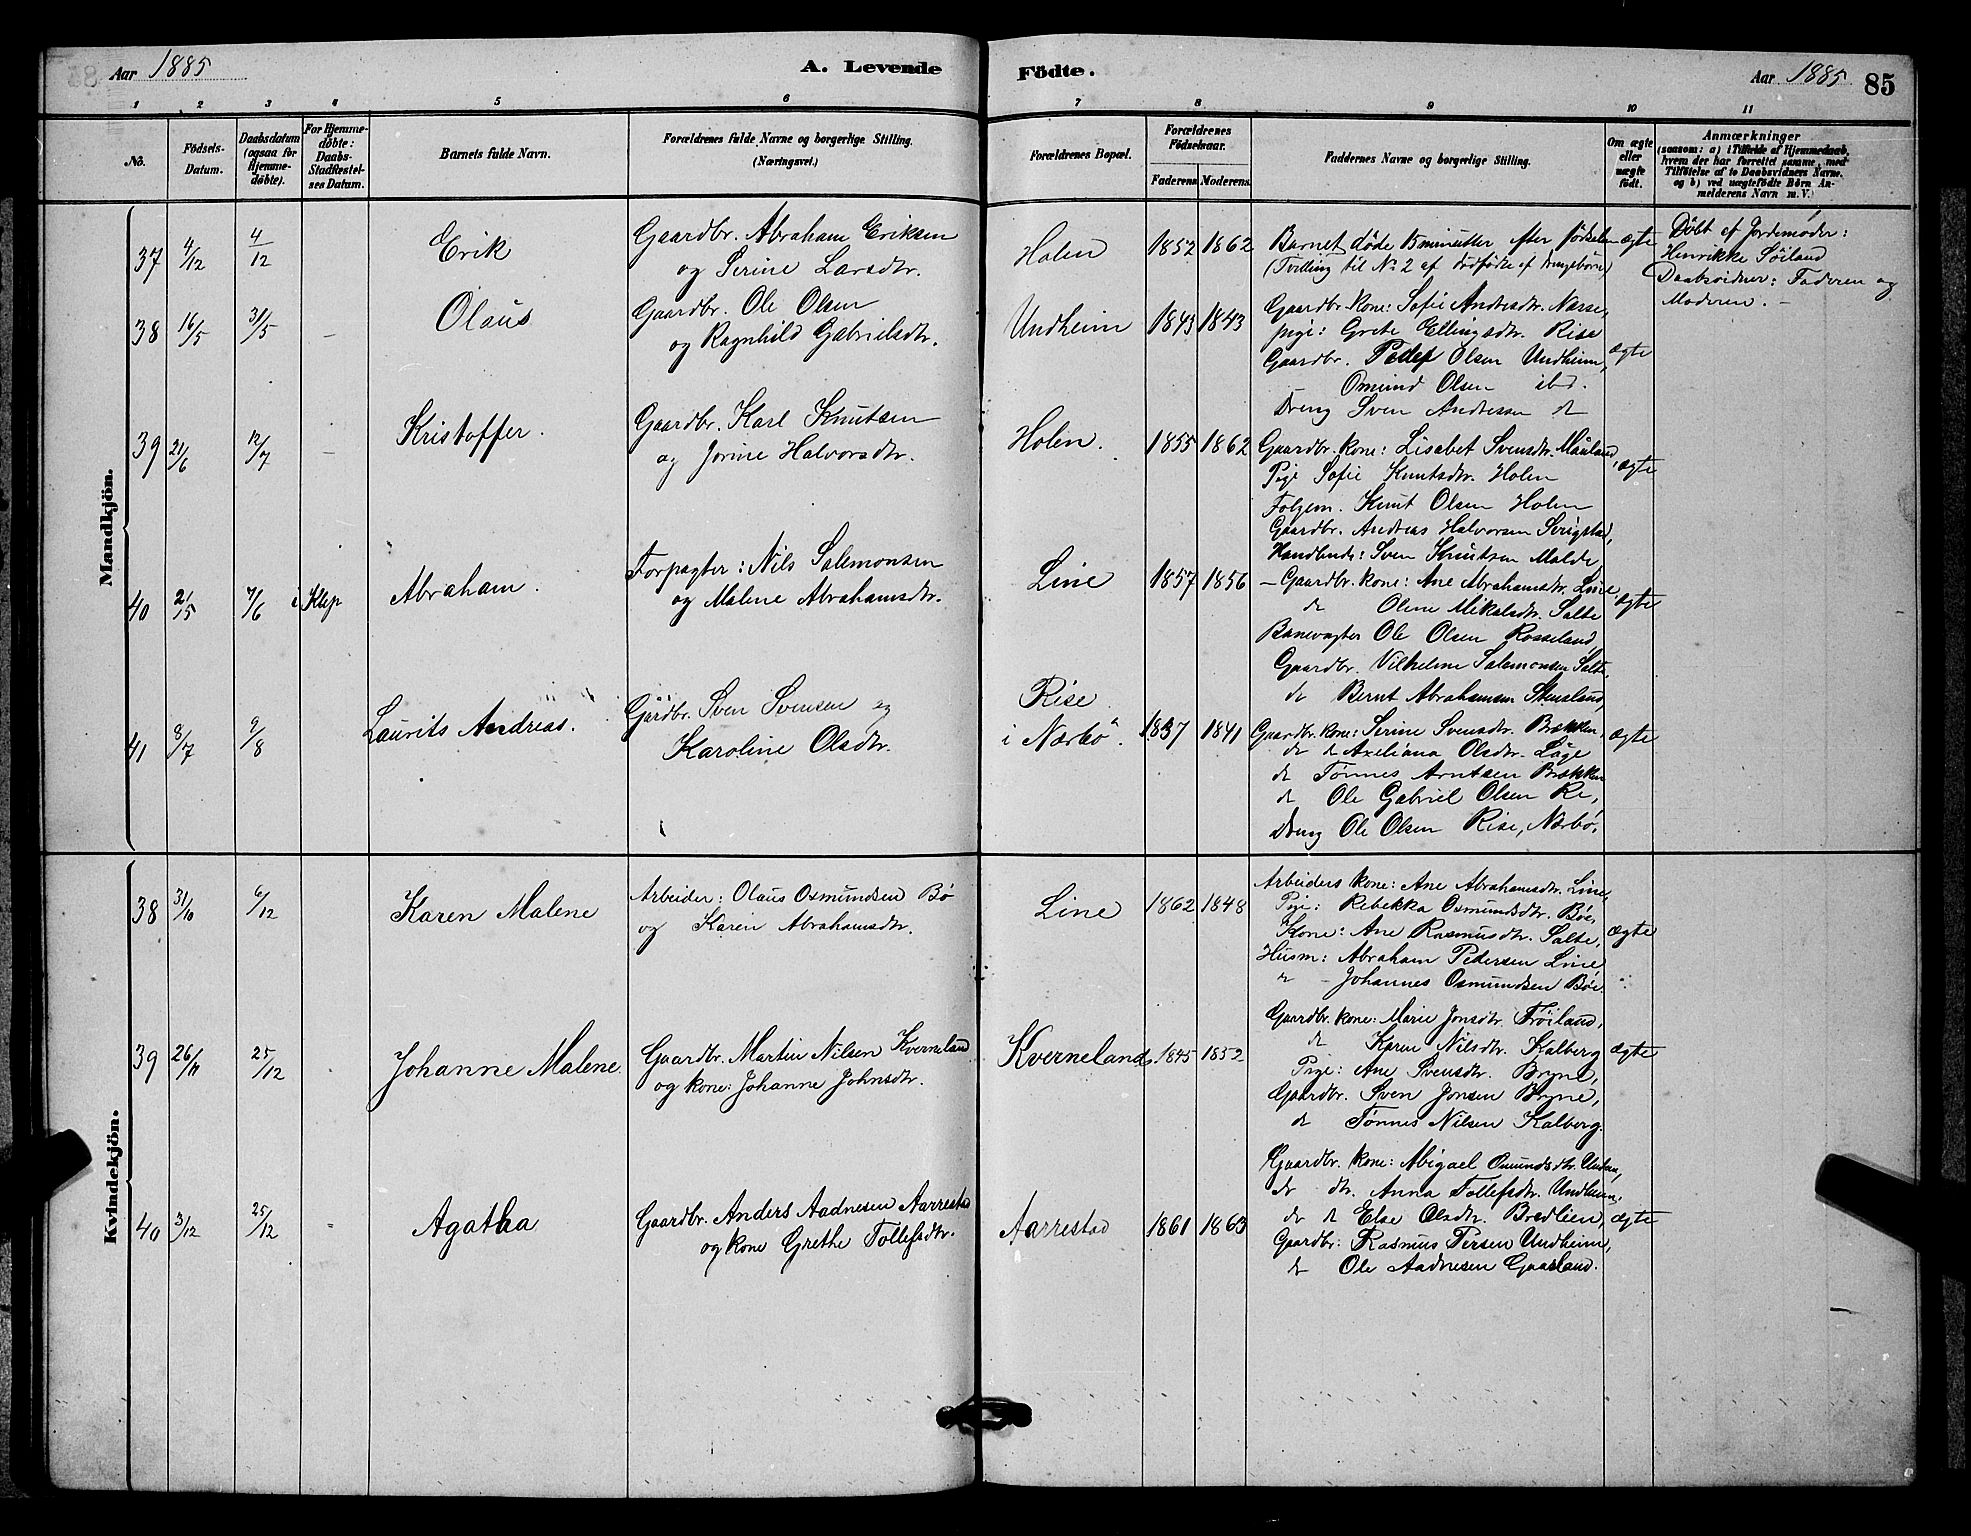 Aar 1885
A. Levende Födte.
Aar 1885
85
1 2 3 4 5 6 7 8 9 10 11
No.
Födsels-Datum.
Daabsdatum (ogsaa for Hjemme-döbte).
For Hjemme-döbte: Daabs-Stadfæstel-ses Datum.
Barnets fulde Navn.
Forældrenes fulde Navne og borgerlige Stilling.
(Næringsvei.)
Forældrenes Bopæl.
Forældrenes Födselsaar.
Faderens Moderens
Faddernes Navne og borgerlige Stilling.
Om ægte eller uægte födt.
Anmærkninger
(saasom: a) i Tilfælde af Hjemmedaab,
hvem der har forrettet samme, med
Tilföielse af to Daabsvidners Navne,
og b) ved uægtefödte Börn An-
melderens Navn m. V.)
Mandkjön.
37 4/12 4/12 Erik
Gaardbr. Abraham Eriksen
og Serine Larsdtr.
Holen 1852 1862
Barnet døde 15 minutter efter fødselen
(Tvilling til No 2 af dødfødte af Drengebørn)
ægte
Døbt af Jordemoder:
Henrikke Søiland
Daabsvidner: Faderen og
Moderen. -
38 16/5 31/5 - Olaus
Gaardbr. Ole Olsen
og Ragnhild Gabrielsdtr.
Undheim 1843 1843
Gaardbr. kone: Sofie Andreasdtr. Næsse,
pige: Grete Ellingsdtr. Rise
Gaardbr. Peder Olsen Undheim,
Omund Olsen ibd.
Dreng Sven Andersen d
ægte
39 21/6 12/7 - Kristoffer.
Gaardbr. Karl Knutsen
og Jorine Halvorsdtr.
Holen. 1855 1862
Gaardbr. kone: Lisabet Svensdtr. Mauland,
Pige Sofie Knutsdtr. Holen
Folgem. Knut Olsen Holen
Gaardbr. Andreas Halvorsen Serigstad,
Handlende: Sven Knutsen Malde
ægte
40 2/5 7/6 i Klep Abraham.
Forpagter: Nils Salemonsen
og Malene Abrahamsdtr.
Line 1857 1856
- Gaardbr. kone: Ane Abrahamsdtr. Line,
d Oline Mikalsdtr. Salte
Banevogter Ole Olsen Rosseland,
Gaardbr. Vilhelm Salamonsen Salte,
d Bernt Abrahamsen Stensland,
ægte
41 8/7 9/8 Laurits Andreas.
Gårdbr. Sven Svensen og
Karoline Olsdtr.
Rise
i Nærbö. 1837 1841
Gaardbr. kone: Serine Svensdtr. Brække,
d d Axeliana Olsdtr. Lüge
d Tønnes Arntsen Brække
d Ole Gabriel Olsen Re,
Dreng Ole Olsen Rise, Nærbö.
ægte
Kvindekjön.
38 31/10 6/12 Karen Malene
Arbeider: Olaus Osmundsen Bö
og Karen Abrahamsdtr.
Line 1862 1848
Arbeiders kone: Ane Abrahamsdtr. Line,
Pige: Rebekka Osmundsdtr. Böe,
Kone: Ane Rasmusdtr. Salte,
Husm: Abraham Pedersen Line
" - Johannes Osmundsen Böe.
ægte
39 26/11 25/12 Johanne Malene.
Gaardbr. Martin Nilsen Kverneland
og kone: Johanne Johnsdtr.
Kverneland. 1845 1852
Gaardbr. kone: Marie Jonsdtr. Fröiland,
d Karen Nilsdtr. Kalberg
Pige: Ane Svensdtr. Bryne,
Gaardbr. Sven Jonsen Bryne,
d Tønnes Nilsen Kalberg.
ægte
40 3/12 25/12 Agatha
Gaardbr. Anders Aadnesen Aarrestad
og kone Grethe Tollefsdtr.
Aarrestad 1861 1863
Gaardbr. kone: Abigael Omundsdtr.
d dtr. Anna Tollefsdtr. Undheim,
d d Else Olsdtr. Bredlien,
Gaardbr: Rasmus Persen Undheim,
d Ole Aadnesen Gaasland.
ægte